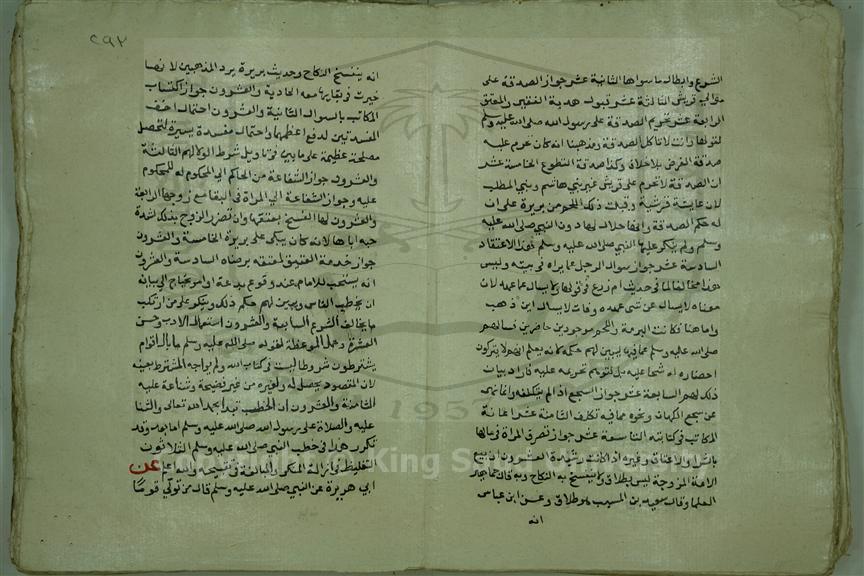 الشرع وابطال ما سواها الثانية عشر جواز الصدقة على
موالي قريش الثالثة عشر قبول هدية الفقير والمعتق
الرابعة عشر تحريم الصدقة على رسول الله صلى الله عليه وسلم
لقولها وانت لا تاكل الصدقة ومذهبنا انه كان تحرم عليه
صدقة الفرض بلا خلاف وكذا صدقة التطوع الخامسة عشر
ان الصدقة لا تحرم على قريش غير بني هاشم وبني المطلب
لان عايشة قرشية وقبلت ذلك اللحم من بريرة على ان
له حكم الصدقة وانها حلال لها دون النبي صلى الله عليه
وسلم ولم ينكر عليها النبي صلى الله عليه وسلم هذا الاعتقاد
السادسة عشر جواز سوال الرجل عما يراه في بيته وليس
هذا مخالفا لما في حديث ام زرع في قولها ولا يسال عما عهد لان
معناه لا يسال عن شي عهده وفات لا يسال اين ذهب
واما هنا فكانت البرمة واللحم موجودين حاضرين فسالهم
صلى الله عليه وسلم عما فيها ليبين لهم حكمه لانه يعلم انهم لا يتركون
احضاره له شحا عليه بل لتوهم تحريمه عليه فاراد بيان
ذلك لهم السابعة عشر جواز السجع اذا لم يتكلف وانما نهى
عن سجع الكهان ونحوه مما فيه تكلف الثامنة عشر اعانة
المكاتب في كتابته التاسعة عشر جواز تصرف المراة في مالها
بالشرا والاعتاق وغيره اذا كانت رشيدة العشرون ان بيع
الامة المزوجة ليس بطلاق ولا ينفسخ به النكاح وبه قال جماهير
العلما وقال سعيد بن المسيب هو طلاق وعن ابن عباس
انه
٢٩٢
انه ينفسخ النكاح وحديث بريرة يرد المذهبين لانها
خيرت في بقايها معه الحادية والعشرون جواز اكتساب
المكاتب بالسوال الثانية والعشرون احتمال اخف
المفسدتين لدفع اعظمهما واحتمال مفسدة يسيرة لتحصل
مصلحة عظيمة على ما بين في تاويل شرط الولا لهم الثالثة
والعشرون جواز الشفاعة من الحاكم الى المحكوم له للمحكوم
عليه وجواز الشفاعة الى المراة في البقا مع زوجها الرابعة
والعشرون لها الفسخ بعتقها وان تضرر الزوج بذلك لشدة
حبه اياها لانه كان يبكي على بريرة الخامسة والعشرون
جواز خدمة العتيق لمعتقه برضاه السادسة والعشرون
انه يستحب للامام عند وقوع بدعة او امر يحتاج الى بيانه
ان يخطب الناس ويبين لهم حكم ذلك وينكر على من ارتكب
ما يخالف الشرع السابعة والعشرون استعمال الادب وحسن
العشرة وجميل الموعظة لقوله صلى الله عليه وسلم ما بال اقوام
يشترطون شروطا ليست في كتاب الله ولم يواجه المشترط بعينه
لان المقصود يحصل له ولغيره من غير فضيحة وشناعة عليه
الثامنة والعشرون ان الخطب تبدا بحمد الله تعالى والثنا
عليه والصلاة على رسول الله صلى الله عليه وسلم اما بعد وقد
تكرر هذا في خطب النبي صلى الله عليه وسلم الثلاثون
التغليظ في ازالة المنكر والمبالغة في تقبيحه والله اعلم عن
ابي هريرة عن النبي صلى الله عليه وسلم قال من تولى قوما
1957
King Saud University